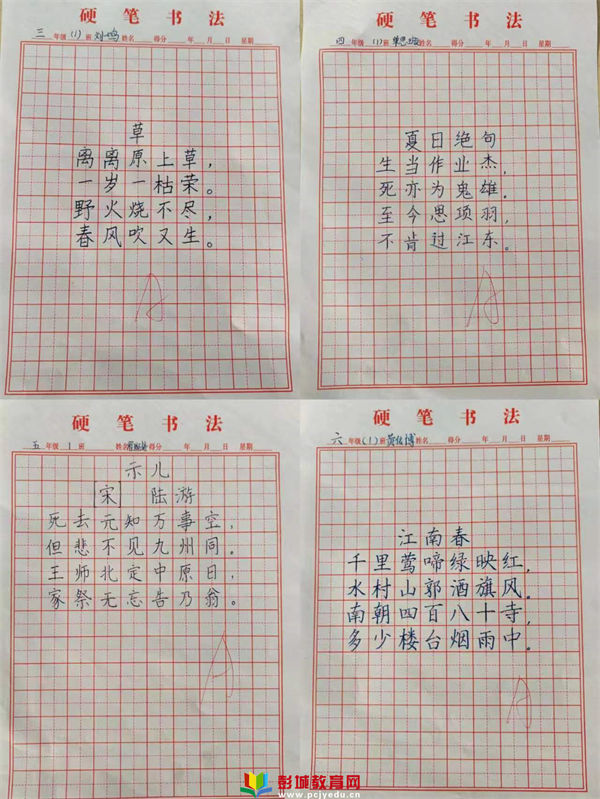 硬笔书法
三 年级 (1) 班 刘一鸣 姓名 得分 年 月 日 星期
草
离离原上草，
一岁一枯荣。
野火烧不尽，
春风吹又生。
A
硬笔书法
四 年级 (1) 班 姓名 得分 年 月 日 星期
夏日绝句
生当作业杰，
死亦为鬼雄。
至今思项羽，
不肯过江东。
A
硬笔书法
五 年级 1 班 姓名 得分 年 月 日 星期
示儿
[宋] 陆游
死去元知万事空，
但悲不见九州同。
王师北定中原日，
家祭无忘告乃翁。
A
硬笔书法
六 年级 (1) 班 姓名 得分 年 月 日 星期
江南春
千里莺啼绿映红，
水村山郭酒旗风。
南朝四百八十寺，
多少楼台烟雨中。
A
彭城教育网
www.pcjyedu.cn